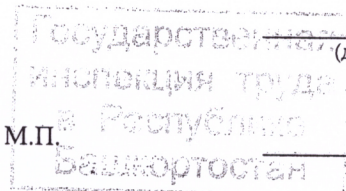 Государственная
(д
инспекция труда
в Республике
М.П.
Башкортостан